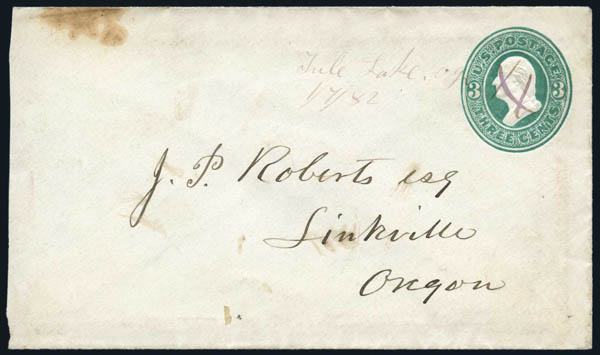 Tule Lake. Ogn
1/7/82
U.S. POSTAGE
3 3
THREE CENTS
J. P. Roberts esq
Linkville
Oregon